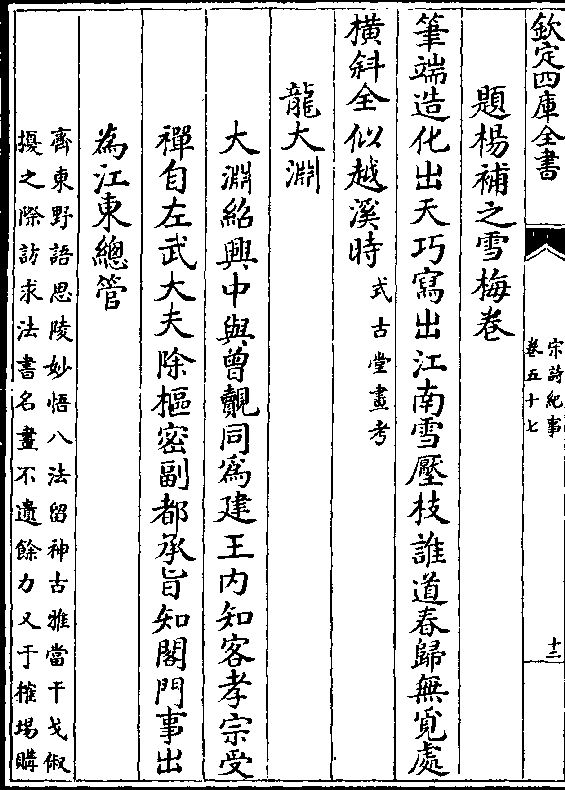 欽定四庫全書
宋詩紀事
卷五十七
十二
題楊補之雪梅卷
筆端造化出天巧寫出江南雪壓枝誰道春歸無覓處
橫斜全似越溪時式古堂畫考
龍大淵
大淵紹興中與曾覿同為建王內知客孝宗受
禪自左武大夫除樞密副都承旨知閤門事出
為江東總管
齊東野語思陵妙悟八法留神古雅當干戈俶
擾之際訪求法書名畫不遺餘力又于榷場購